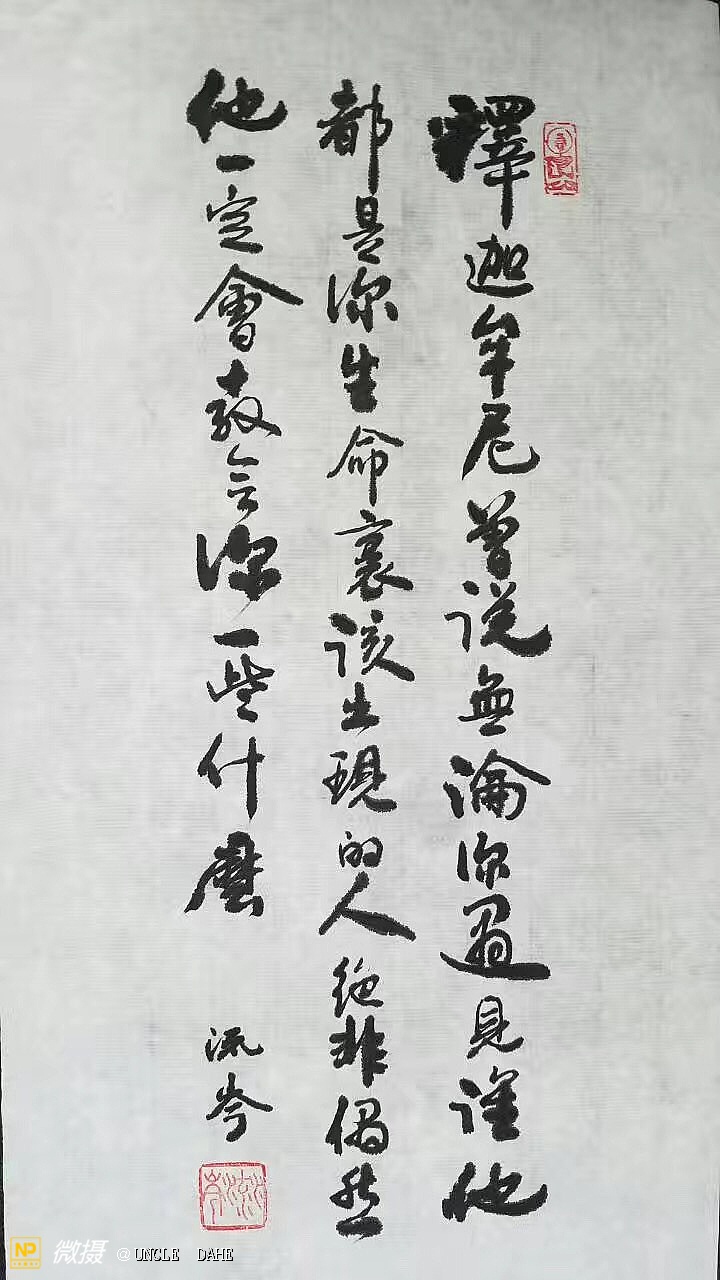 釋迦牟尼曾说無論你遇見誰他
都是你生命裏该出現的人绝非偶然
他一定會教会你一些什麼
流岑
NP 微摄 @UNCLE DAHE